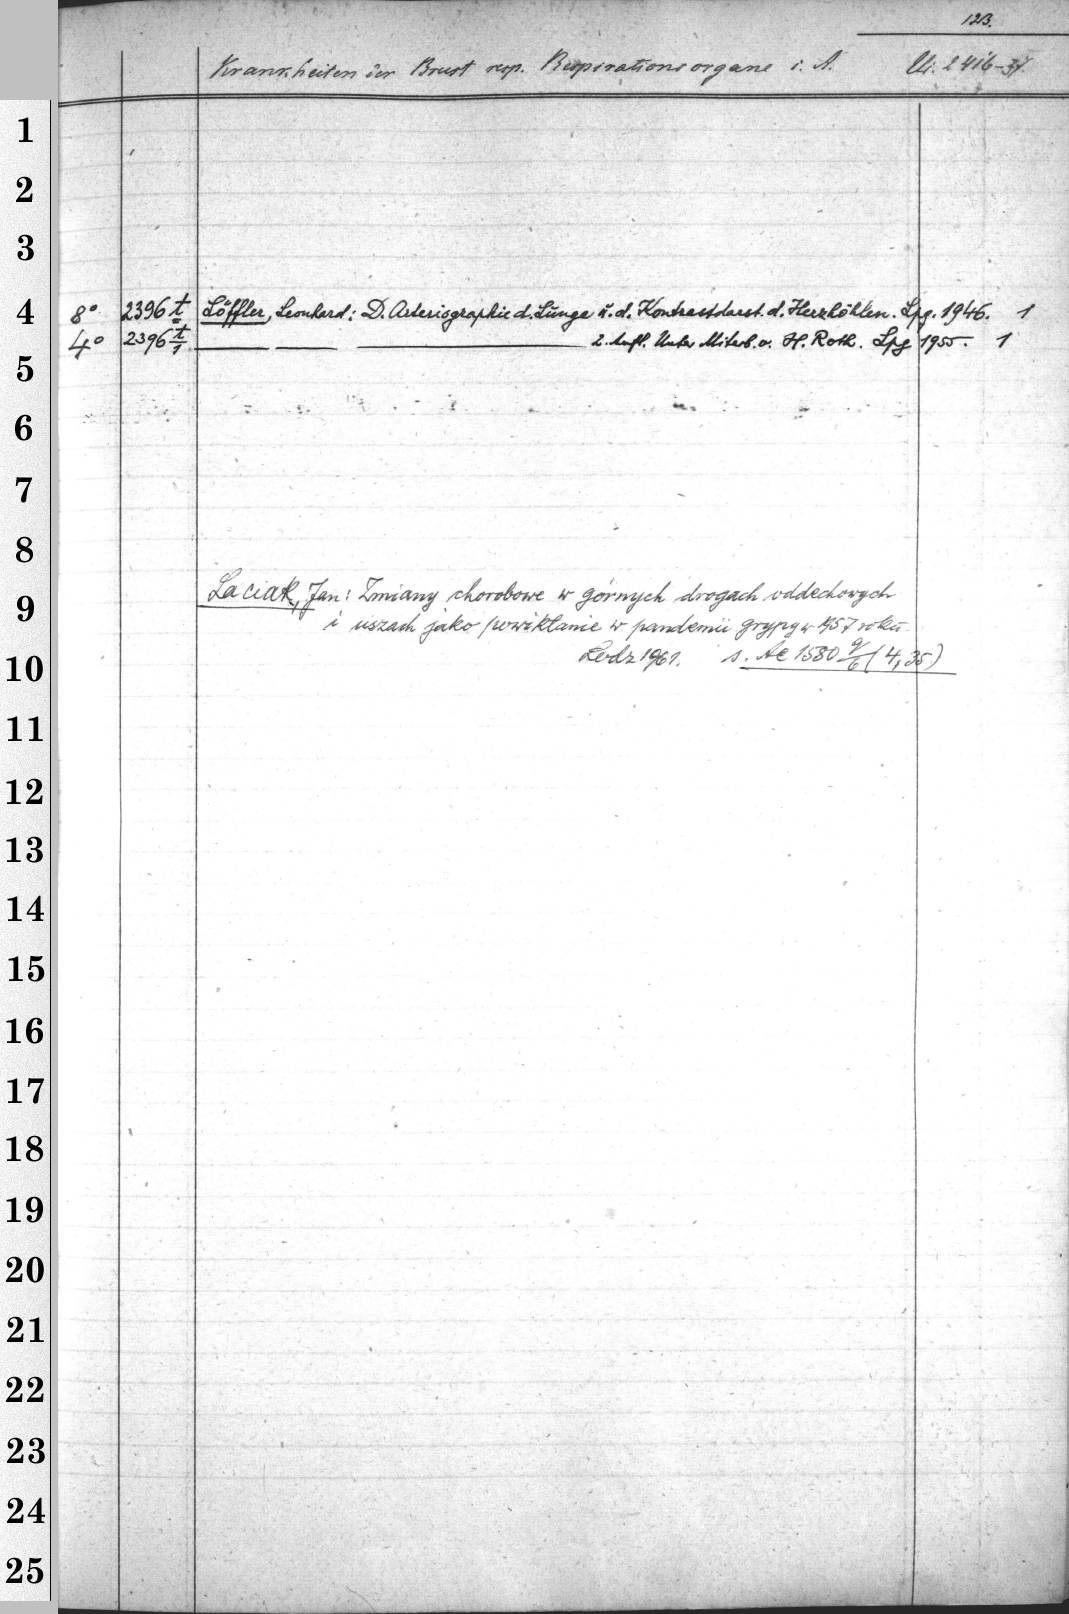 123.
Krankheiten der Brust resp. Respirationsorgane i. A. Ui. 2416-37.
1
2
3
4
8° 2396 t Löffler, Leonhard: D. Arteriographie d. Lunge u. d. Kontrastdarst. d. Herzhöhlen. Lpg. 1946. 1
4° 2396 t/1 — — — 2. Aufl. Unter Mitarb. v. H. Roth. Lpg 1955. 1
5
6
7
8
Laciak, Jan: Zmiany chorobowe w górnych drogach oddechowych
9
i uszach jako powikłanie w pandemii grypy w 1957 roku
Lodz 1961. s. Ae 1580 9/6 (4,35)
10
11
12
13
14
15
16
17
18
19
20
21
22
23
24
25